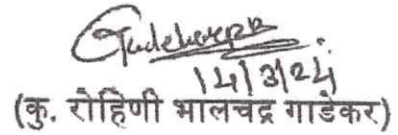 14/3/24
(कु. रोहिणी भालचद्र गाडेकर)